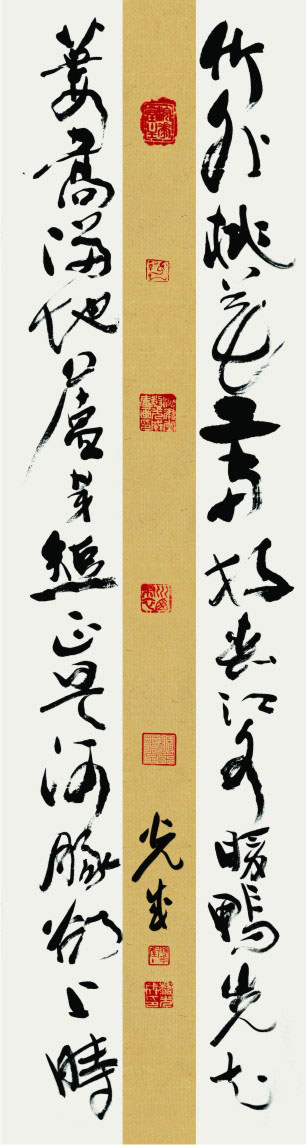 竹外桃花三兩枝春江水暖鴨先知
蔞蒿滿地蘆芽短正是河豚欲上時